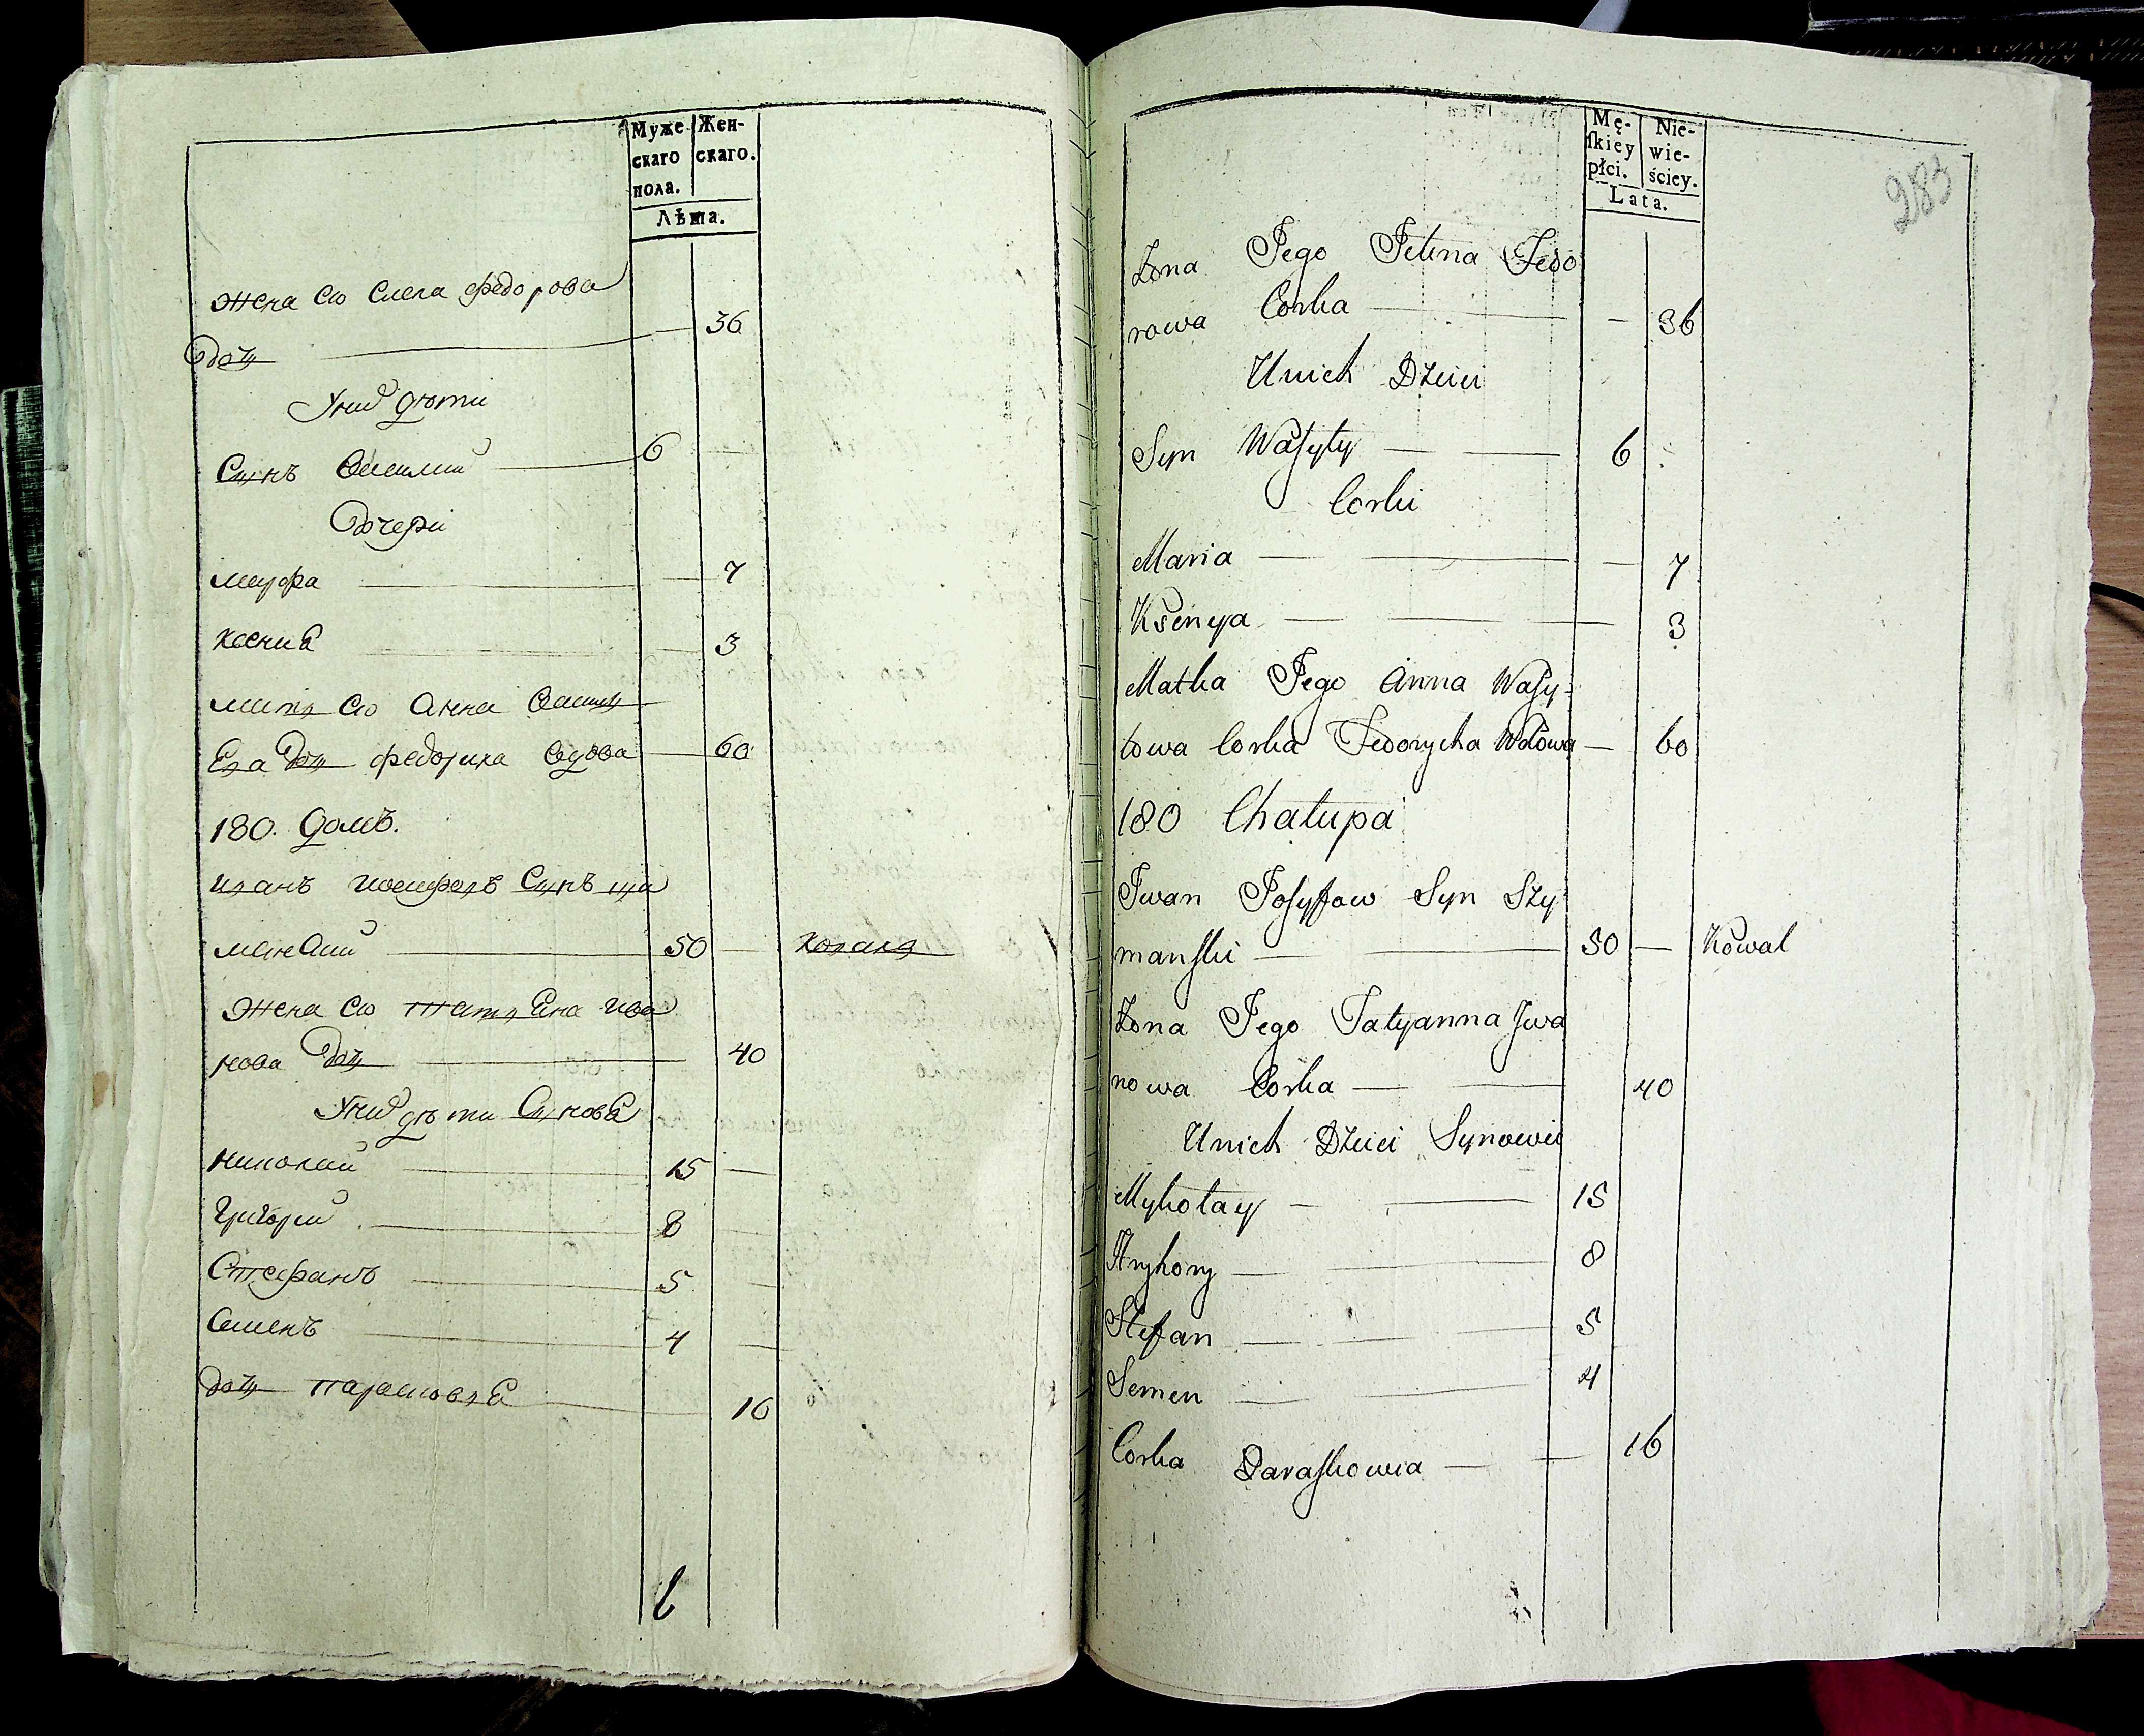 Муже
скаго
пола.
Жен-
скаго.
Лѣта.
жена его Елена федорова
дочь — 36
У них дѣти
Сынъ Василий 6 —
Дочери
марфа — 7
ксения — 3
мать его Анна Василь
ева дочь федориха вдова — 60
180. домъ.
иванъ иосифовъ Сынъ ши
манский 50 — коваль
жена его татьяна ива
нова дочь 40
У них дѣти Сыновья
николай 15 —
Григорий 8 —
Стефанъ 5 —
Семенъ 4 —
дочь парасковья 16
Mę-
ſkiey
płci.
Nie-
wie-
ściey.
Lata.
283
Żona Jego Jelena Fedo
rowa Corka — 36
Unich Dzieci
Syn Waſyly 6
Corki
Maria — 7
Ksenya — 3
Matka Jego Anna Waſy-
lowa Corka Fedorycha Wdowa — 60
180 Chałupa
Iwan Joſyfow Syn Szy
manſki 50 — Kowal
Żona Jego Tatyanna Iwa
nowa Corka — 40
Unich Dzieci Synowie
Mykołay 15
Hryhory 8
Stefan 5
Semen 4
Corka Paraſkowia — 16